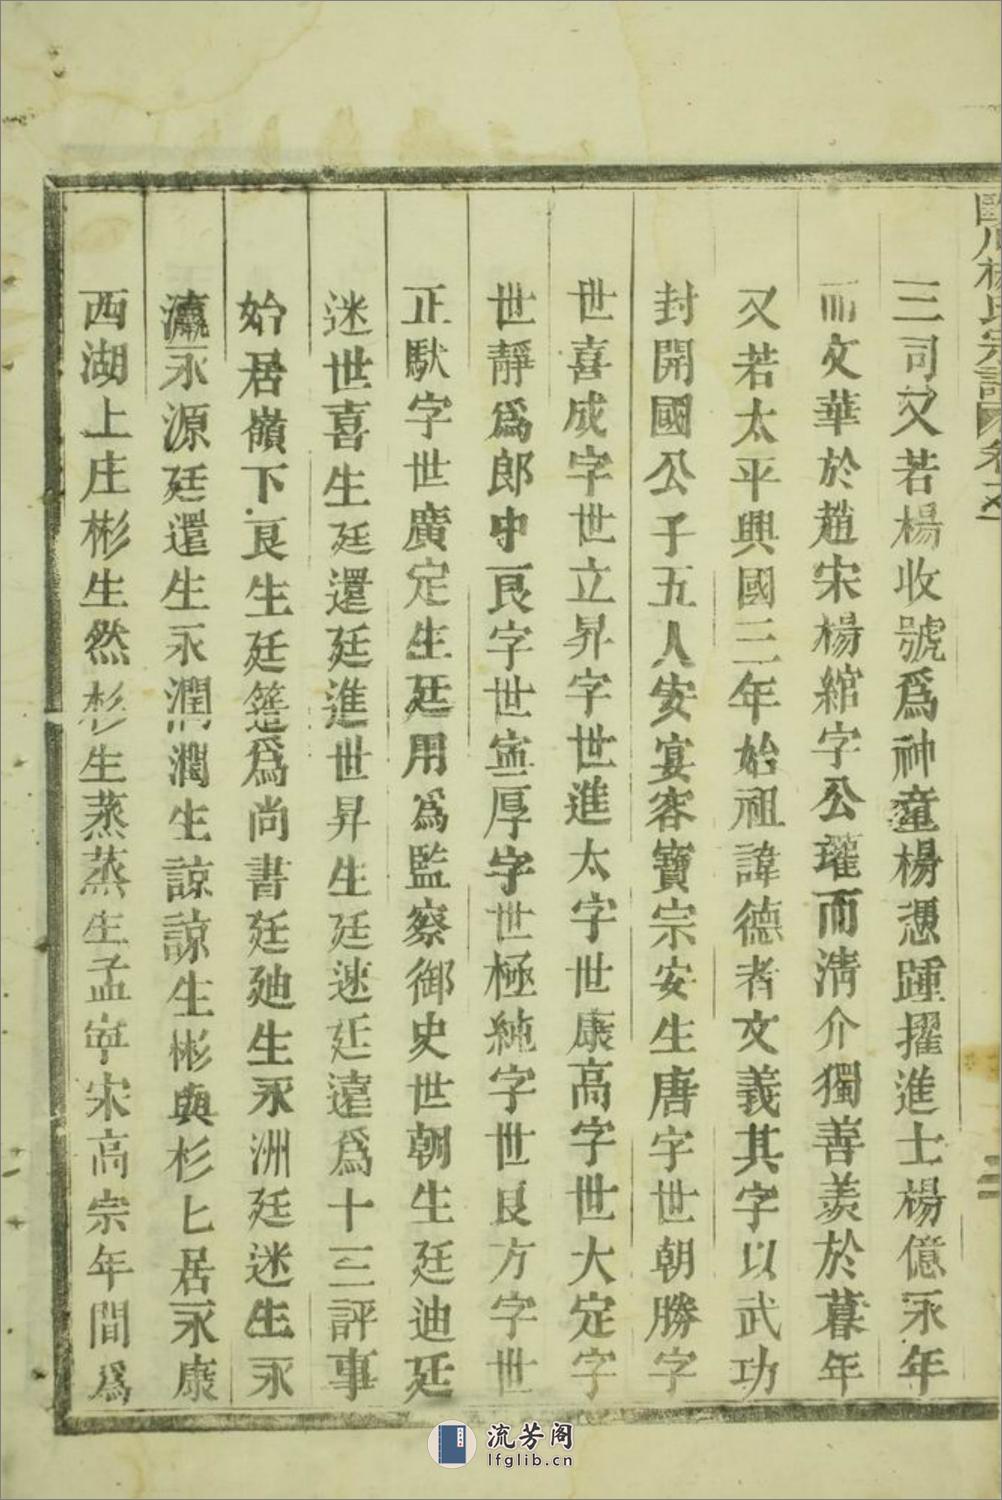 三司又若楊收號爲神童楊憑踵擢進士楊億永年
而文華於趙宋楊綰字公㩲而淸介獨善羨於暮年
又若太平興國三年始祖諱德者文義其字以武功
封開國公子五人安宴容寶宗安生唐字世朝勝字
世喜成字世立昇字世進太字世康高字世大定字
世靜爲郎中艮字世寍厚字世極純字世良方字世
正馱字世廣定生廷用爲監察御史世朝生廷迪廷
迷世喜生廷還廷進世昇生廷速廷遠爲十三評事
始居嶺下艮生廷筵爲尚書廷廸生永洲廷迷生永
瀛永源廷還生永潤潤生諒諒生彬與杉匕居永康
西湖上庄彬生然杉生蒸蒸生孟寕宋高宗年間爲
楊氏宗譜 卷之
流芳阁
lfglib.cn